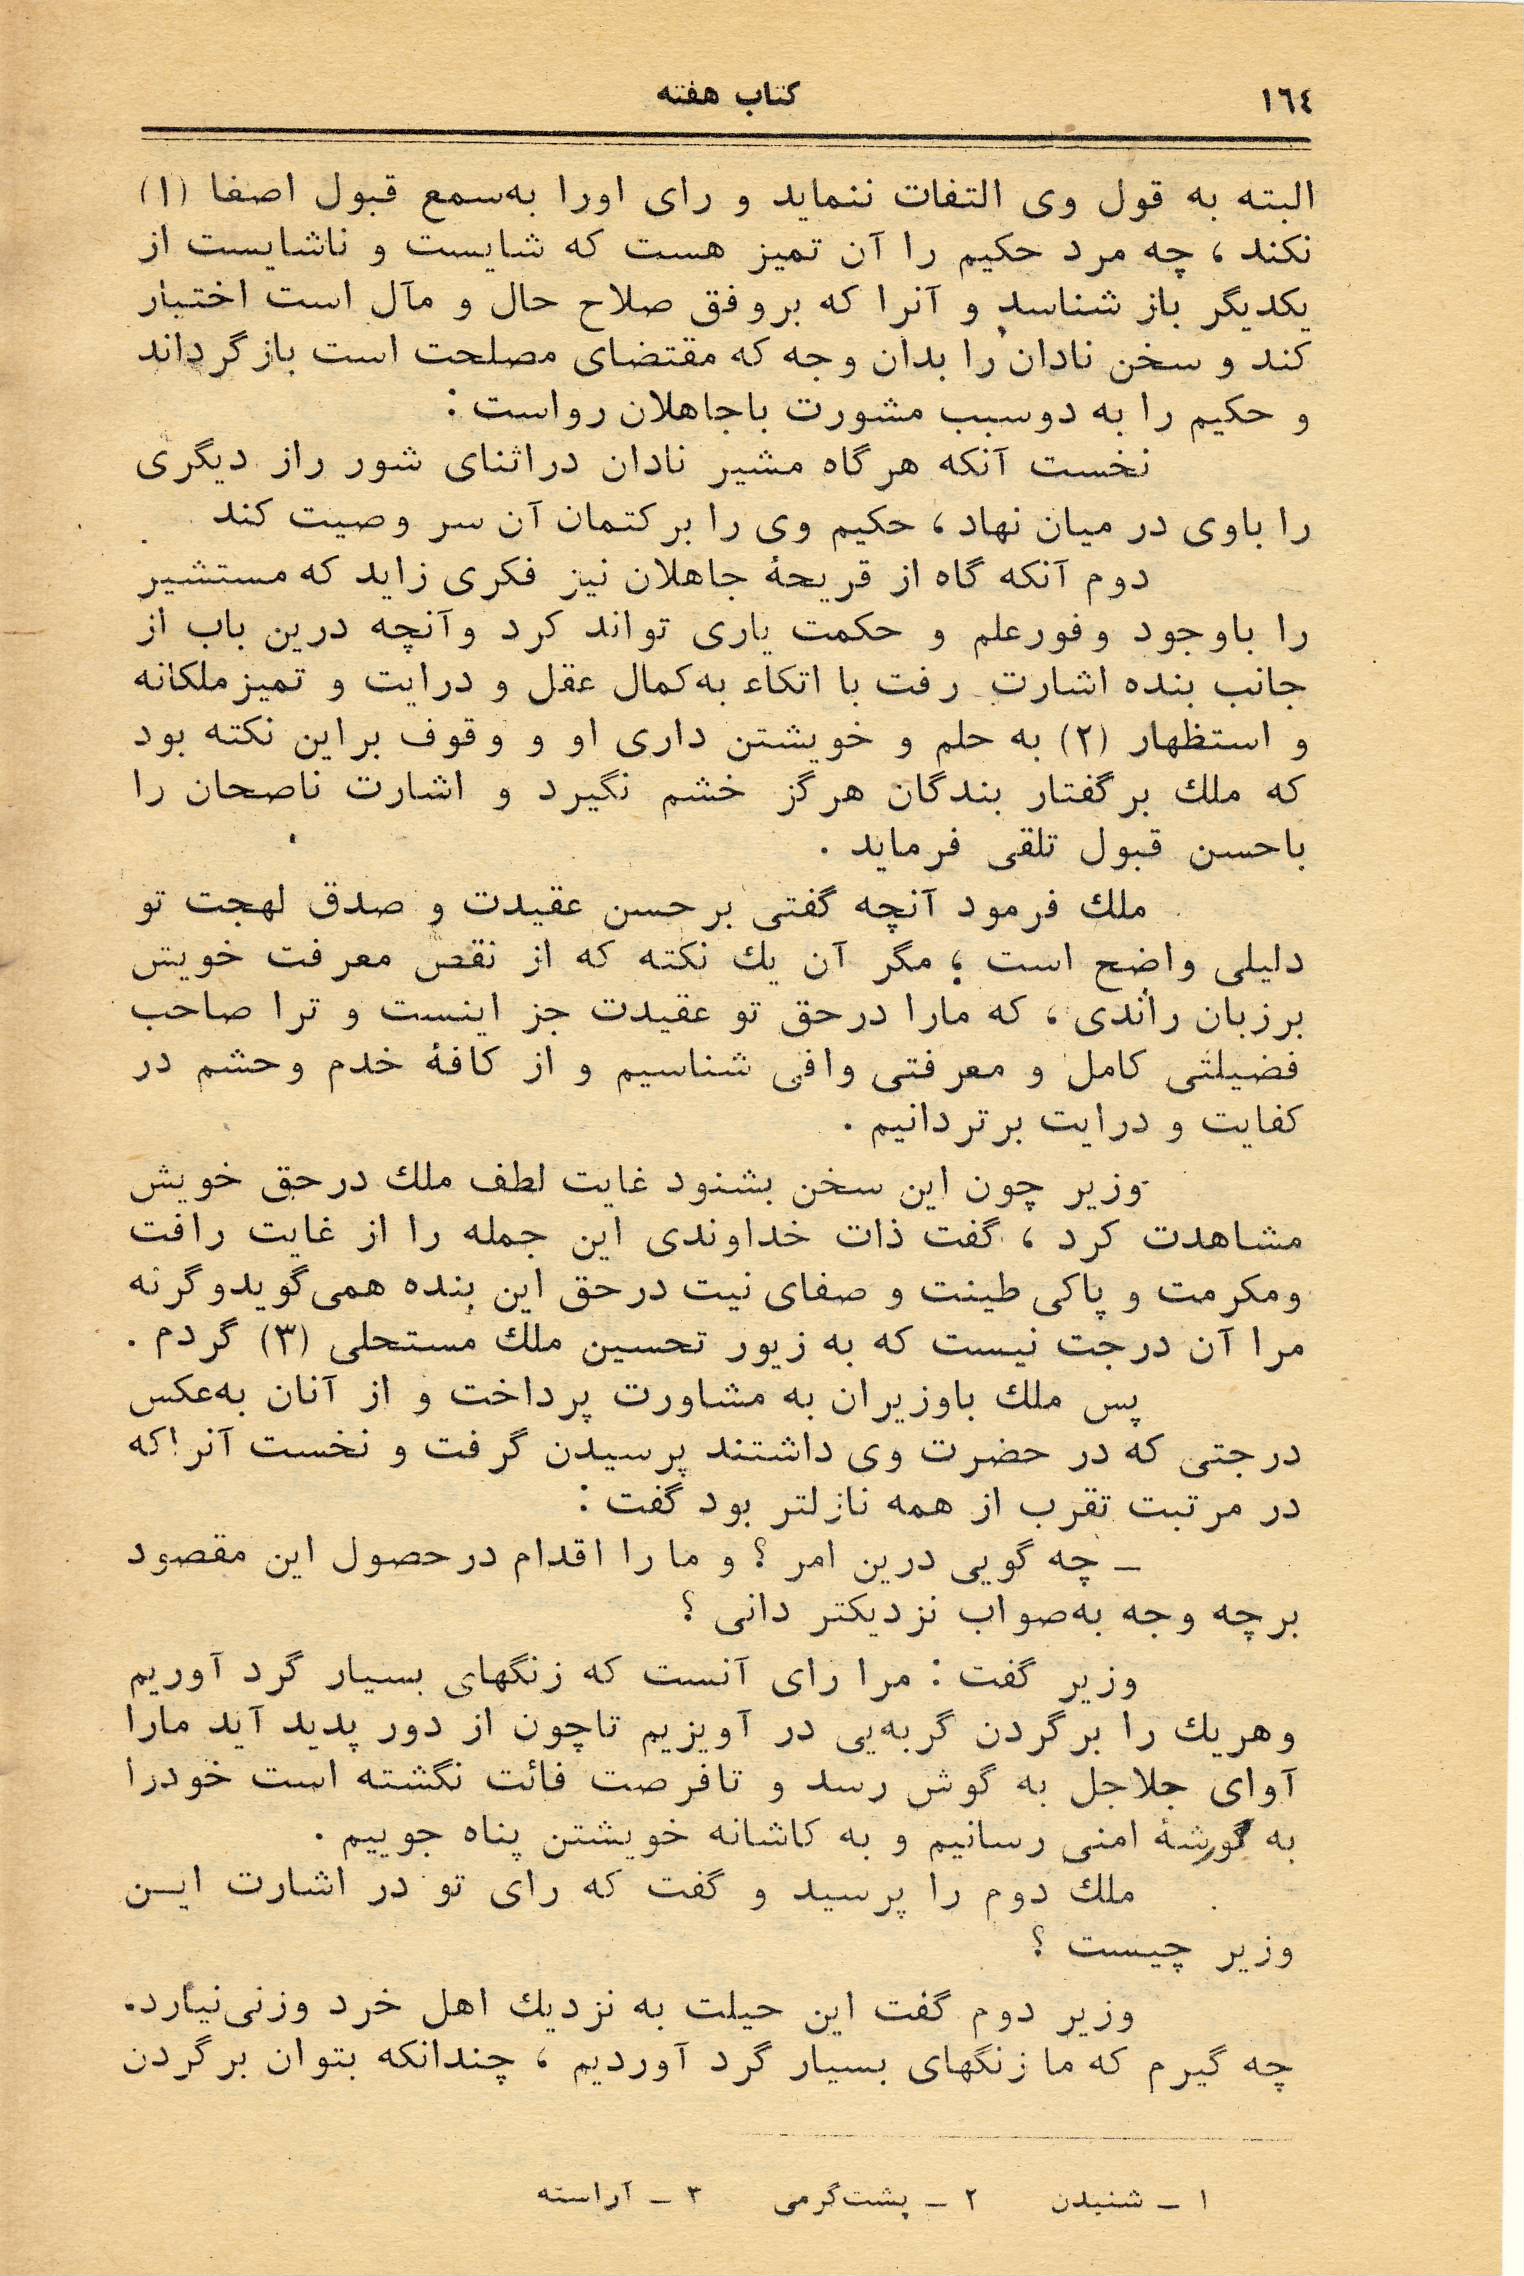 ١٦٤
کتاب هفته
البته به قول وی التفات ننماید و رای اورا به‌سمع قبول اصغا (۱)
نکند ، چه مرد حکیم را آن تمیز هست که شایست و ناشایست از
یکدیگر باز شناسد و آنرا که بروفق صلاح حال و مآل است اختیار
کند و سخن نادان را بدان وجه که مقتضای مصلحت است بازگرداند
و حکیم را به دوسبب مشورت باجاهلان رواست :
نخست آنکه هرگاه مشیر نادان دراثنای شور راز دیگری
را باوی در میان نهاد ، حکیم وی را برکتمان آن سر وصیت کند
دوم آنکه گاه از قریحهٔ جاهلان نیز فکری زاید که مستشیر
را باوجود وفورعلم و حکمت یاری تواند کرد وآنچه درین باب از
جانب بنده اشارت رفت با اتکاء به‌کمال عقل و درایت و تمیزملکانه
و استظهار (۲) به حلم و خویشتن داری او و وقوف براین نکته بود
که ملك برگفتار بندگان هرگز خشم نگیرد و اشارت ناصحان را
باحسن قبول تلقی فرماید .
ملك فرمود آنچه گفتی برحسن عقیدت و صدق لهجت تو
دلیلی واضح است ؛ مگر آن یك نکته که از نقص معرفت خویش
برزبان راندی ، که مارا درحق تو عقیدت جز اینست و ترا صاحب
فضیلتی کامل و معرفتی وافی شناسیم و از کافهٔ خدم وحشم در
کفایت و درایت برتردانیم .
وزیر چون این سخن بشنود غایت لطف ملك درحق خویش
مشاهدت کرد ، گفت ذات خداوندی این جمله را از غایت رافت
ومکرمت و پاکی طینت و صفای نیت درحق این بنده همی‌گویدوگرنه
مرا آن درجت نیست که به زیور تحسین ملك مستحلی (۳) گردم .
پس ملك باوزیران به مشاورت پرداخت و از آنان به‌عکس
درجتی که در حضرت وی داشتند پرسیدن گرفت و نخست آنراکه
در مرتبت تقرب از همه نازلتر بود گفت :
ـ چه گویی درین امر ؟ و ما را اقدام درحصول این مقصود
برچه وجه به‌صواب نزدیکتر دانی ؟
وزیر گفت : مرا رای آنست که زنگهای بسیار گرد آوریم
وهریك را برگردن گربه‌یی در آویزیم تاچون از دور پدید آید مارا
آوای جلاجل به گوش رسد و تافرصت فائت نگشته است خودرا
به گوشهٔ امنی رسانیم و به کاشانه خویشتن پناه جوییم .
ملك دوم را پرسید و گفت که رای تو در اشارت ایـن
وزیر چیست ؟
وزیر دوم گفت این حیلت به نزدیك اهل خرد وزنی‌نیارد.
چه گیرم که ما زنگهای بسیار گرد آوردیم ، چندانکه بتوان برگردن
۱ ـ شنیدن ۲ ـ پشت‌گرمی ۳ ـ آراسته